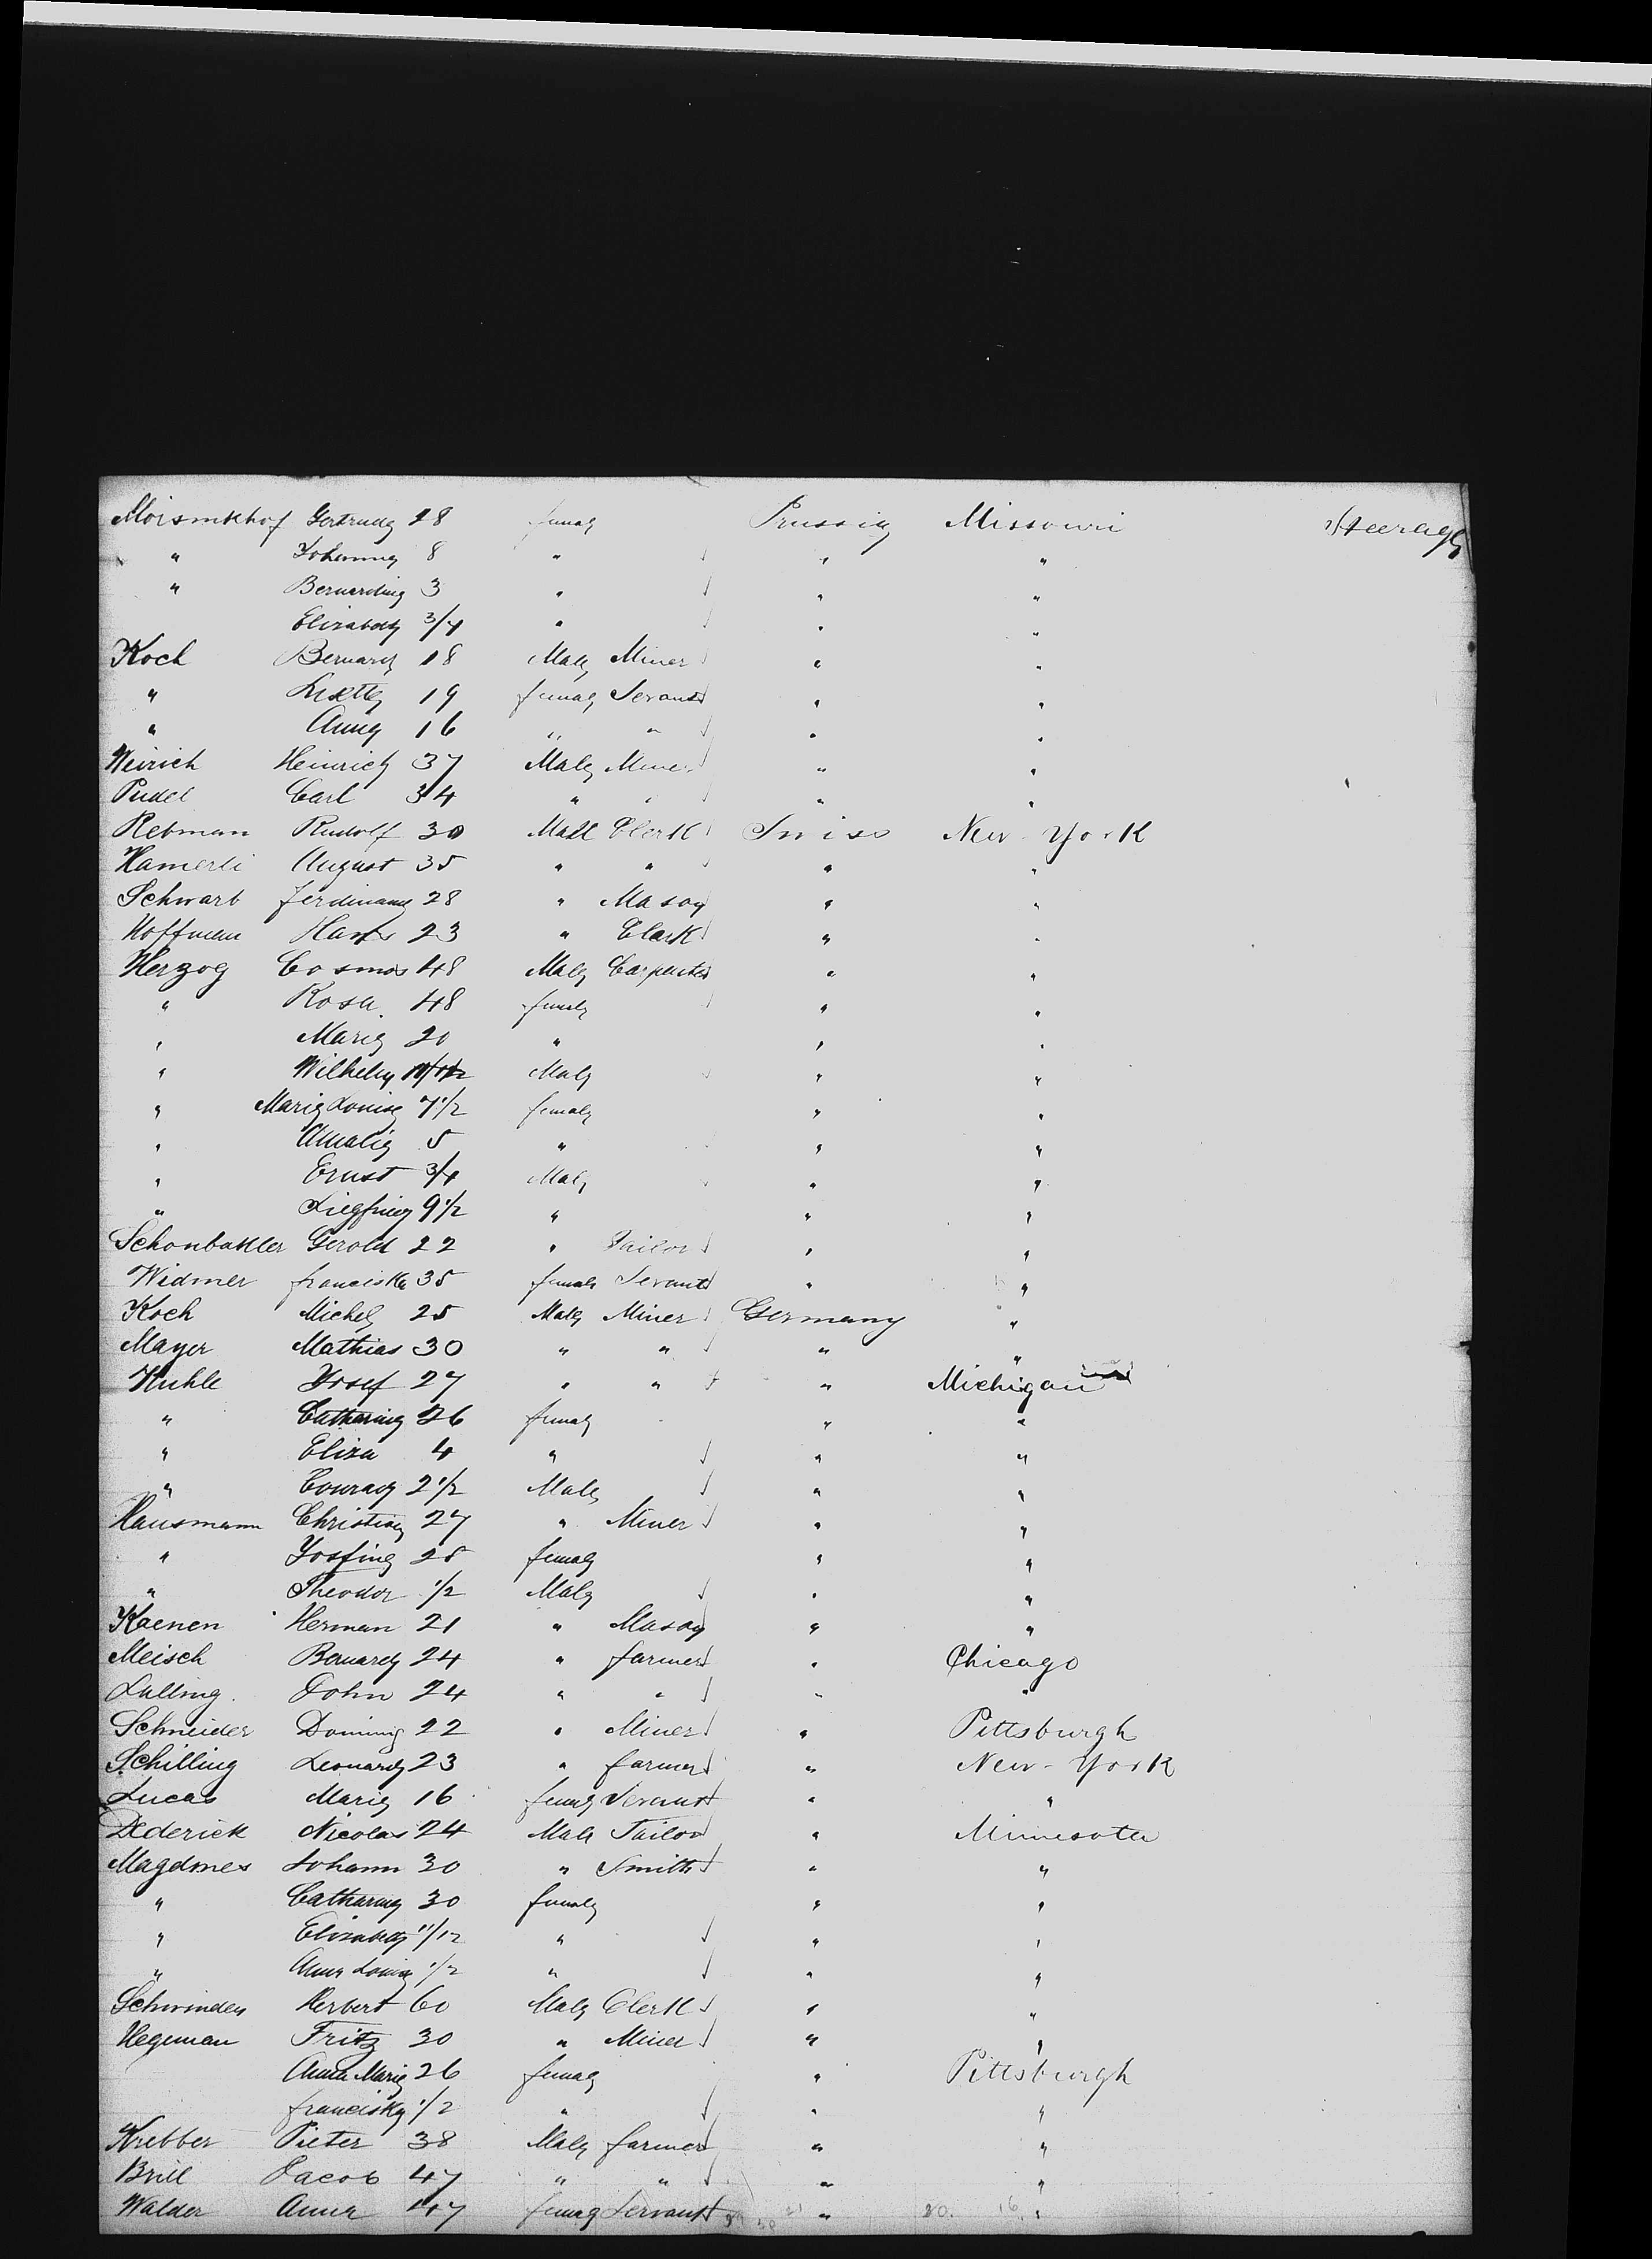 Moismkhof Gertrude 28 female Prussia Missouri Steerage
" Johanna 8 " " "
" Bernardine 3 " " "
Elizabeth 3/4 " " "
Koch Bernard 18 Male Miner " "
" Lisette 19 female Servant " "
" Anna 16 " " " "
Weirich Heinrich 37 Male Miner " "
Pudel Carl 34 " " " "
Rebman Rudolf 30 Male Clerk Swiss New-York
Hamerli August 35 " " " "
Schwarb ferdinand 28 " Mason " "
Hoffman Hans 23 " Clerk " "
Herzog Cosmos 48 Male Carpenter " "
" Rosa 48 female " "
" Marie 20 " " "
" Wilhelm Male " "
" Marie Louise 7 1/2 female " "
" Amalie 5 " " "
" Ernst 3/4 Male " "
" Siegfried 9 1/2 " " "
Schonbakler Gerold 22 " Tailor " "
Widmer franciska 35 female Servant " "
Koch Michel 25 Male Miner Germany "
Mayer Mathias 30 " " " "
Kuhle Josef 27 " " " Michigan
" Catharina 26 female " "
" Eliza 4 " " "
" Conrad 2 1/2 Male " "
Hausmann Christian 27 " Miner " "
" Josfine 25 female " "
" Theodor 1/2 Male " "
Kaenen Herman 21 " Mason " "
Meisch Bernard 24 " farmer " Chicago
Lulling John 24 " " " "
Schneider Dominig 22 " Miner " Pittsburgh
Schilling Leonard 23 " farmer " New-York
Lucas Marie 16 female Servant " "
Dederick Nicolas 24 Male Tailor " Minnesota
Magdmes Johann 30 " Smith " "
" Catharina 30 female " "
" Elizabeth 11/12 " " "
" Anna Louise 1/2 " " "
Schwinden Herbert 60 Male Clerk " "
Hegeman Fritz 30 " Miner " "
Anna Marie 26 female " Pittsburgh
franciska 1/2 " " "
Krebber Pieter 38 Male farmer " "
Brill Jacob 47 " " " "
Walder Anna 47 female Servant " "